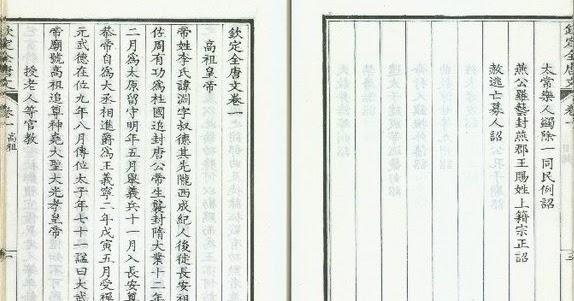 太常樂人蠲除一同民例詔
燕公羅藝封燕郡王賜姓上籍宗正詔
赦逃亡募人詔
欽定全唐文卷一
高祖皇帝
帝姓李氏諱淵字叔德其先隴西成紀人後徙長安祖
佐周有功為柱國追封唐公帝生襲封隋大業十二年
二月為太原留守明年五月舉義兵十一月入長安尊
恭帝自為大丞相進爵為王義寧二年戊寅五月受禪
元武德在位九年八月傳位太子年七十一諡曰大武
帝廟號高祖追尊神堯大聖大光孝皇帝
授老人等官教
欽定全唐文 卷一 高祖